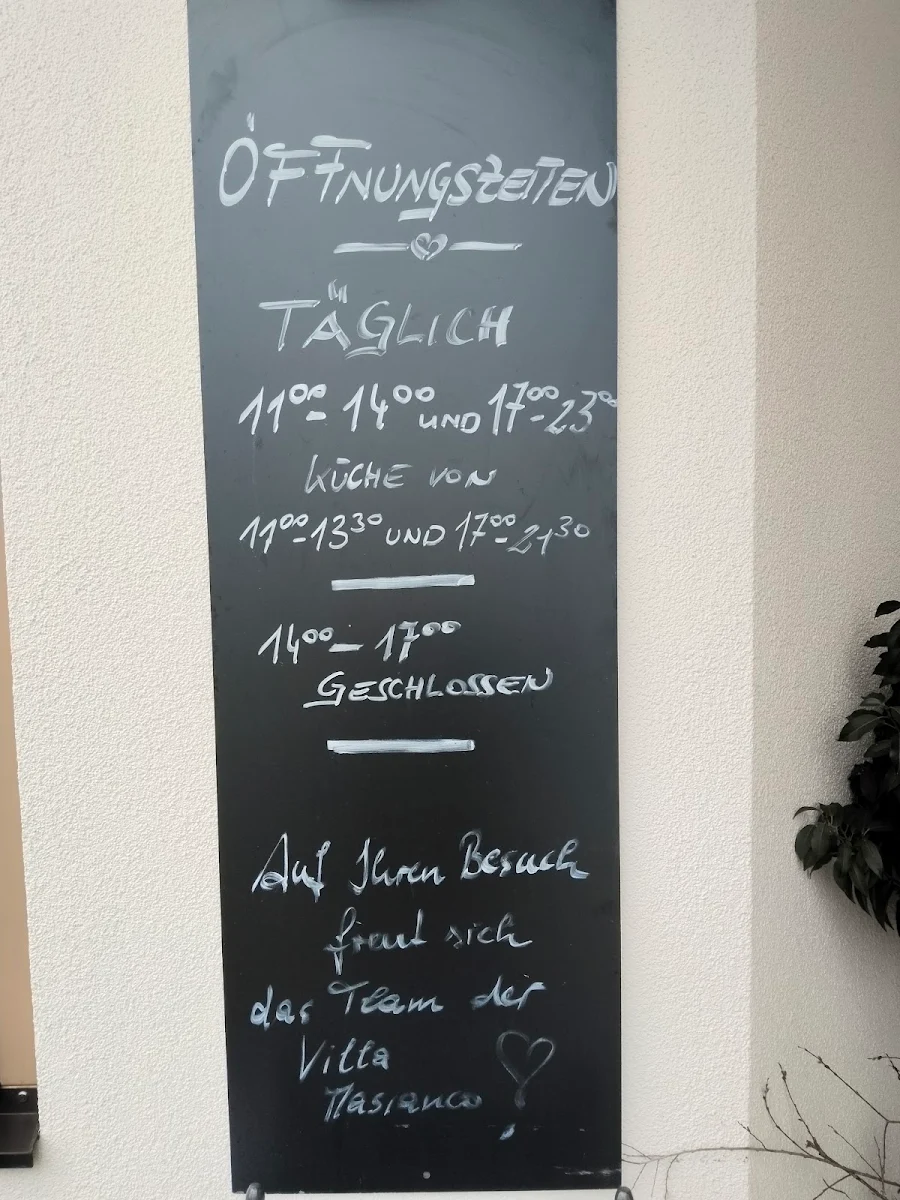 ÖFFNUNGSZEITEN
TÄGLICH
11⁰⁰- 14⁰⁰ UND 17⁰⁰-23⁰⁰
KÜCHE VON
11⁰⁰-13³⁰ UND 17⁰⁰-21³⁰
14⁰⁰- 17⁰⁰
GESCHLOSSEN
Auf Ihren Besuch
freut sich
das Team der
Villa
Masianco